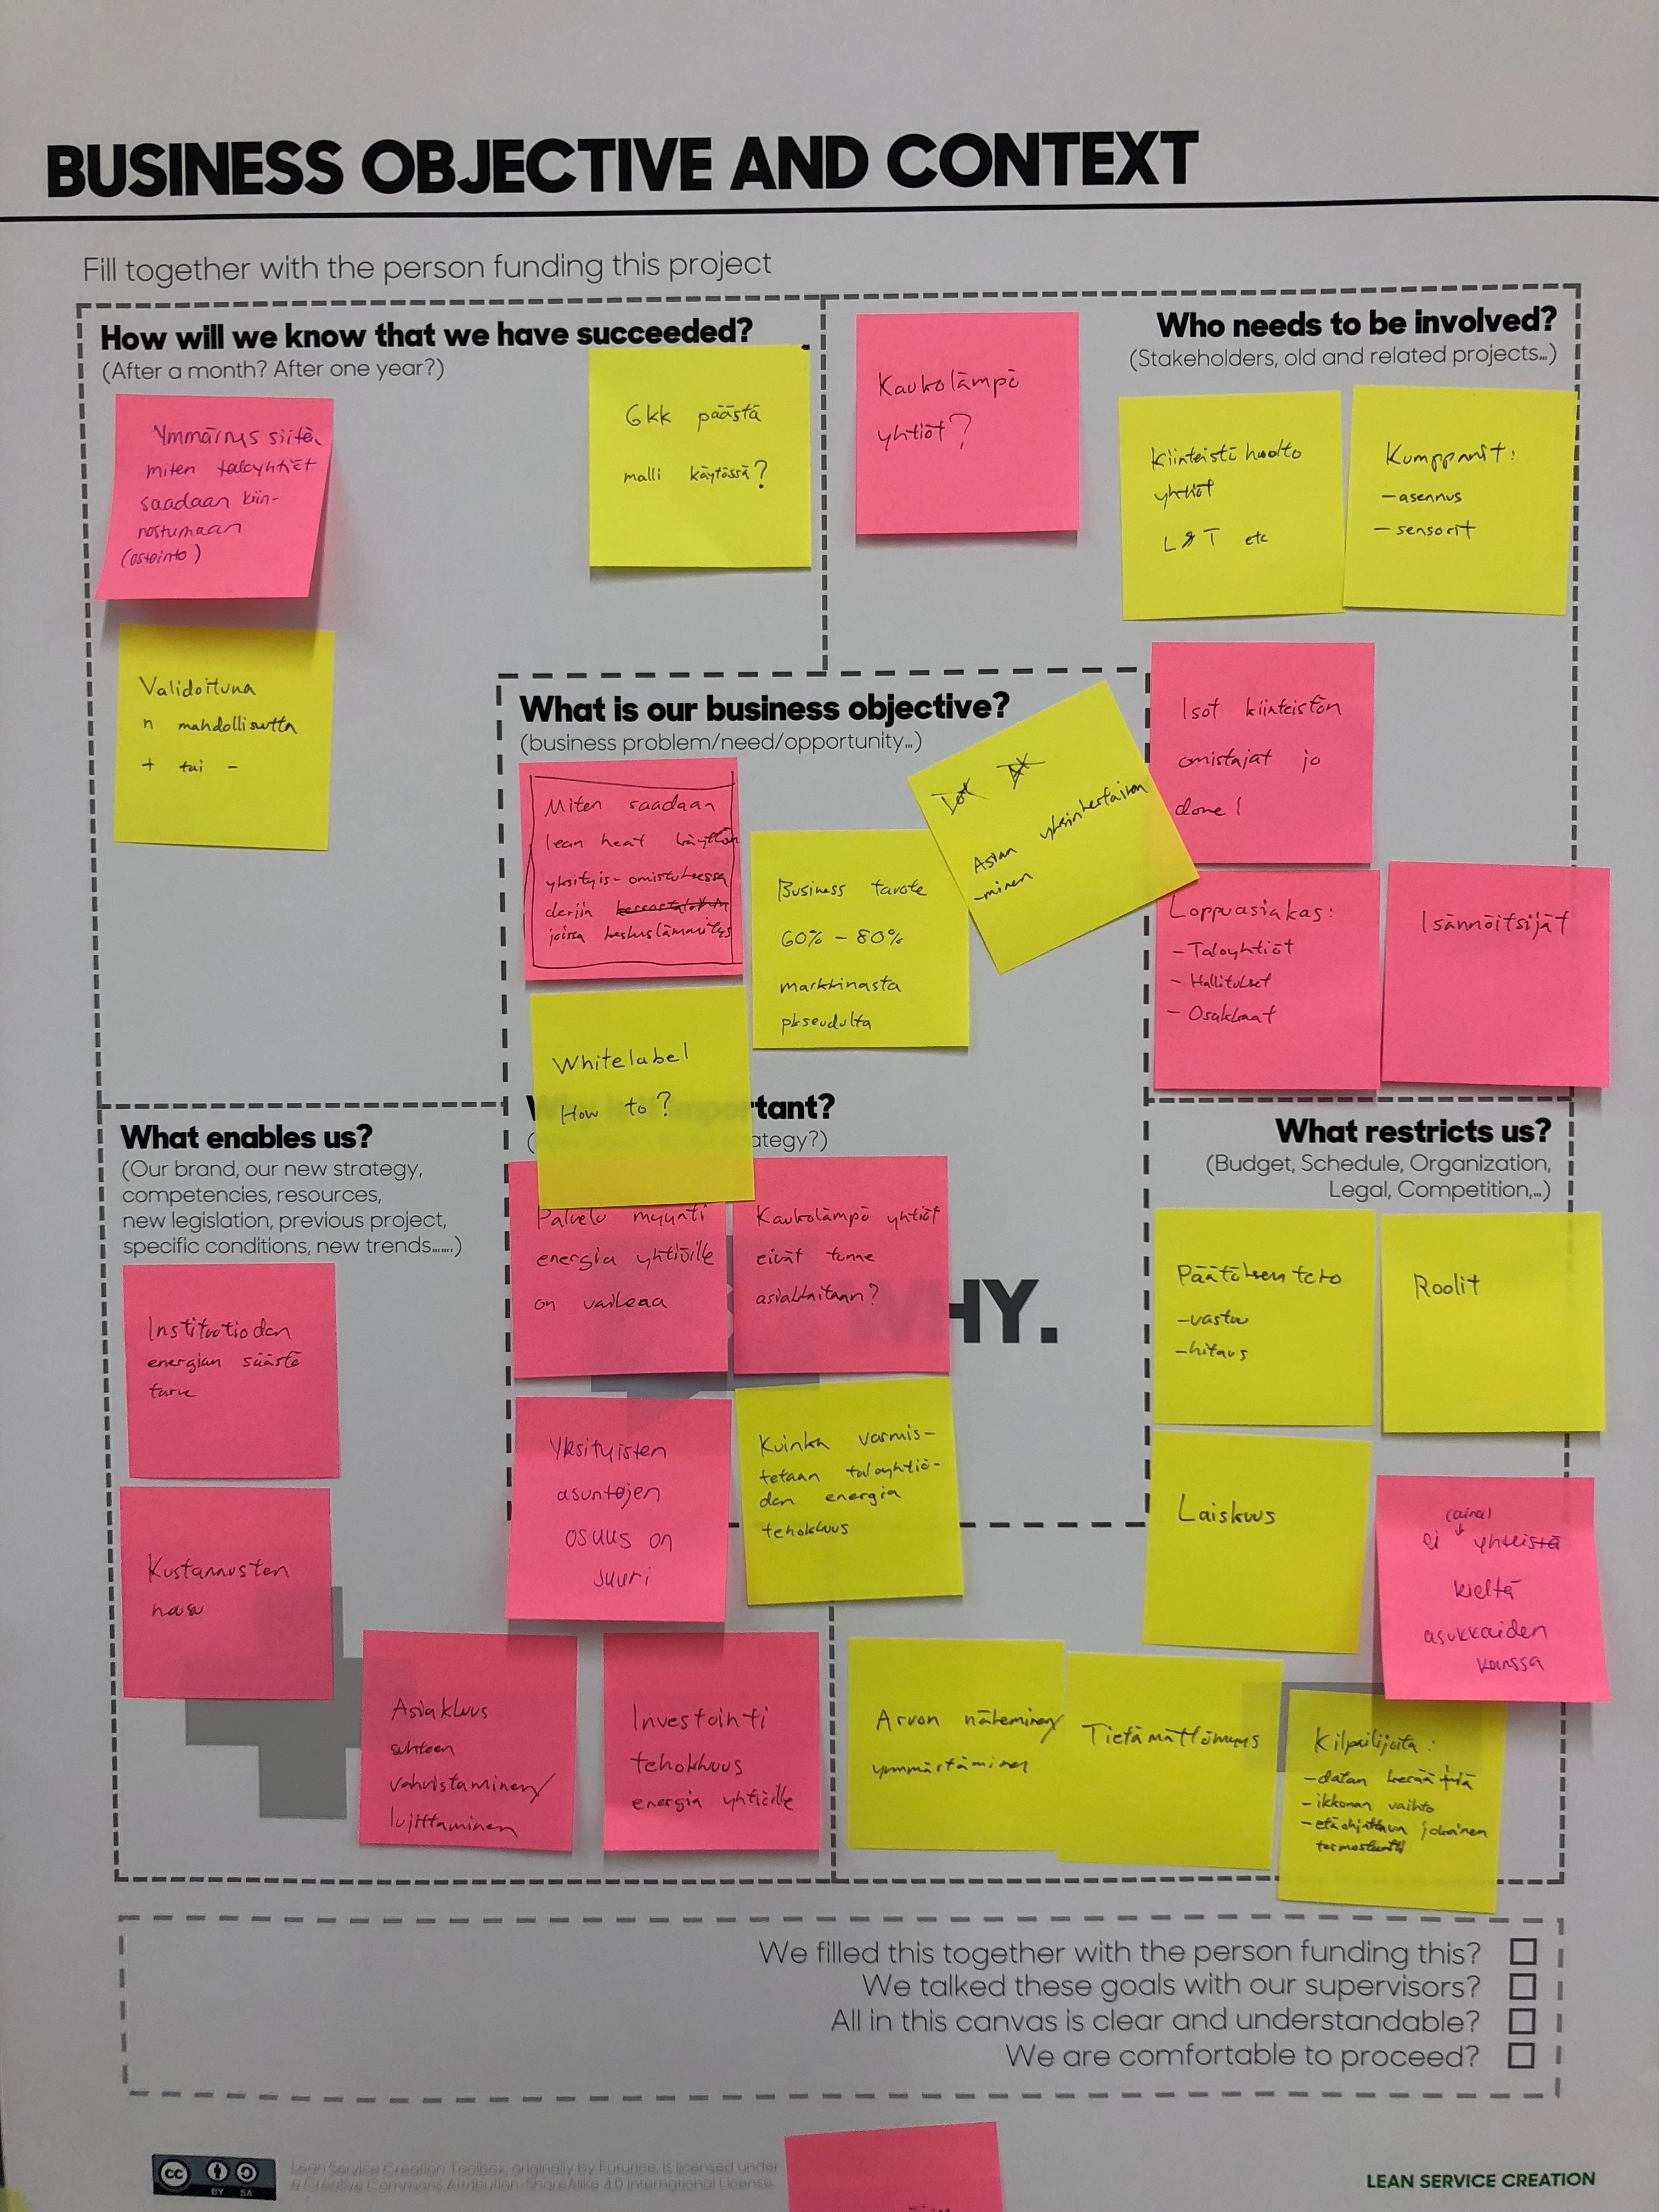 BUSINESS OBJECTIVE AND CONTEXT
Fill together with the person funding this project
How will we know that we have succeeded?
(After a month? After one year?)
Ymmärrys siitä,
miten taloyhtiöt
saadaan kiin-
nostumaan
(ostointo)
6kk päästä
malli käytössä?
Validoituna
n mahdollisuutta
+ tai -
Who needs to be involved?
(Stakeholders, old and related projects...)
Kaukolämpö
yhtiöt?
Kiinteistö huolto
yhtiöt
L&T etc
Kumppanit:
- asennus
- sensorit
Isot kiinteistön
omistajat jo
done!
Loppuasiakas:
- Taloyhtiöt
- Hallitukset
- Osakkaat
Isännöitsijät
What is our business objective?
(business problem/need/opportunity...)
Miten saadaan
lean heat käyttöön
yksityis-omistuksessa
joissa keskuslämmitys
Business tavote
60% - 80%
markkinasta
pkseudulta
Asian yksinkertaista
-minen
Whitelabel
How to?
tant?
ategy?)
Palvelu myynti
energia yhtiöille
on vaikeaa
Kaukolämpö yhtiöt
eivät tunne
asiakkaitaan?
HY.
Yksityisten
asuntojen
osuus on
suuri
Kuinka varmis-
tetaan taloyhtiö-
den energia
tehokkuus
What enables us?
(Our brand, our new strategy,
competencies, resources,
new legislation, previous project,
specific conditions, new trends......)
Instituutioden
energian säästö
tarve
Kustannusten
nousu
Asiakkuus
suhteen
vahvistaminen/
lujittaminen
Investointi
tehokkuus
energia yhtiöille
What restricts us?
(Budget, Schedule, Organization,
Legal, Competition,...)
Päätöksen teko
- vastuu
- hitaus
Roolit
Laiskuus
(aina)
ei yhteistä
kieltä
asukkaiden
kanssa
Arvon näkeminen/
ymmärtäminen
Tietämättömyys
Kilpailijoita:
- datan kerääjiä
- ikkunan vaihto
- etäohjattava jokainen
termostaatti
We filled this together with the person funding this?
We talked these goals with our supervisors?
All in this canvas is clear and understandable?
We are comfortable to proceed?
cc
BY SA
Lean Service Creation Toolbox, originally by Futurice, is licensed under
a Creative Commons Attribution-ShareAlike 4.0 International License.
LEAN SERVICE CREATION